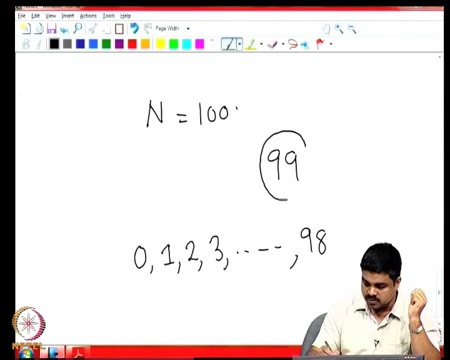 File Edit View Insert Actions Tools Help
Page Width
B I
N = 100.
99
0, 1, 2, 3, ..---, 98